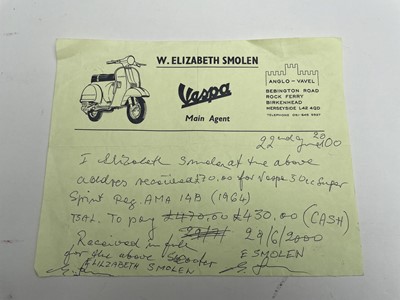 W. ELIZABETH SMOLEN
ANGLO-VAVEL
Vespa
Main Agent
BEBINGTON ROAD
ROCK FERRY
BIRKENHEAD
MERSEYSIDE L42 4QD
22nd
I Elizabeth Smolen at the above
address received £70.00 for Vespa 50cc Super
Sprint Reg. AMA 14B (1964)
BAL. To pay £470.00 £430.00 (CASH)
Received in full 29/6/2000
for the above Scooter E SMOLEN
ELIZABETH SMOLEN